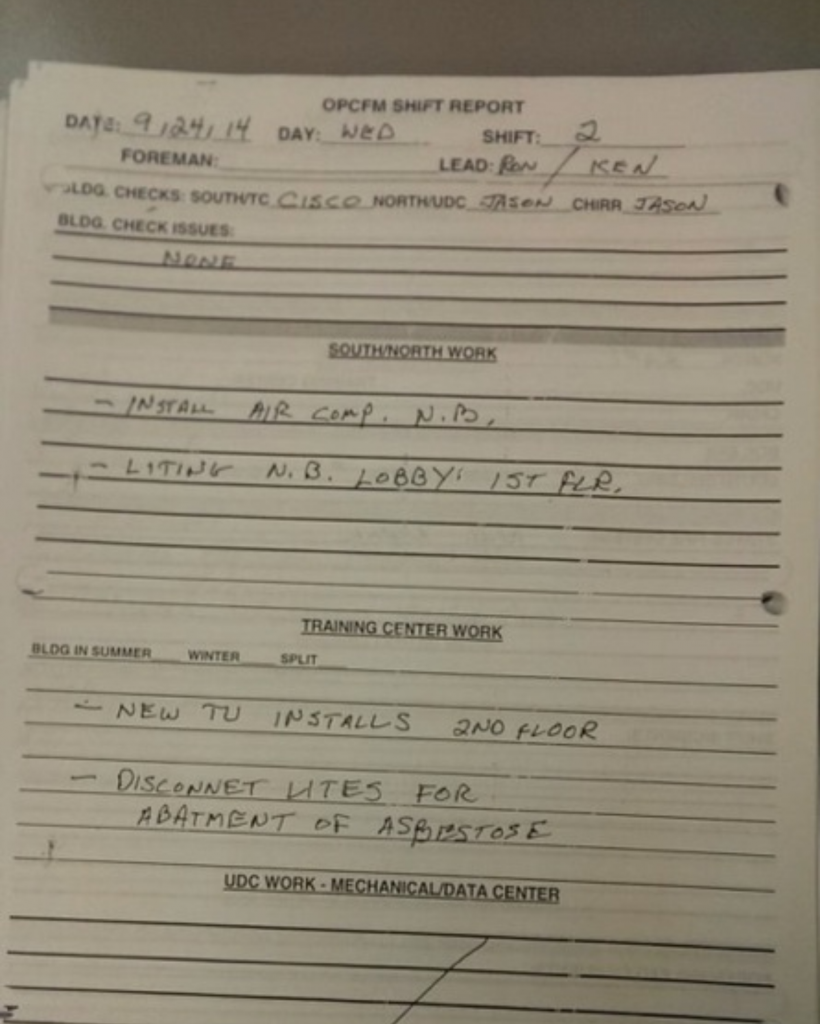 OPCFM SHIFT REPORT
DATE: 9/24/14 DAY: WED SHIFT: 2
FOREMAN: LEAD: RON / KEN
BLDG. CHECKS: SOUTH/TC CISCO NORTH/UDC JASON CHIRR JASON
BLDG. CHECK ISSUES:
NONE
SOUTH/NORTH WORK
- INSTALL AIR COMP. N.B.
- LITING N.B. LOBBY' 1ST FLR.
TRAINING CENTER WORK
BLDG IN SUMMER WINTER SPLIT
- NEW TU INSTALLS 2ND FLOOR
- DISCONNET LITES FOR
ABATMENT OF ASBESTOSE
UDC WORK - MECHANICAL/DATA CENTER